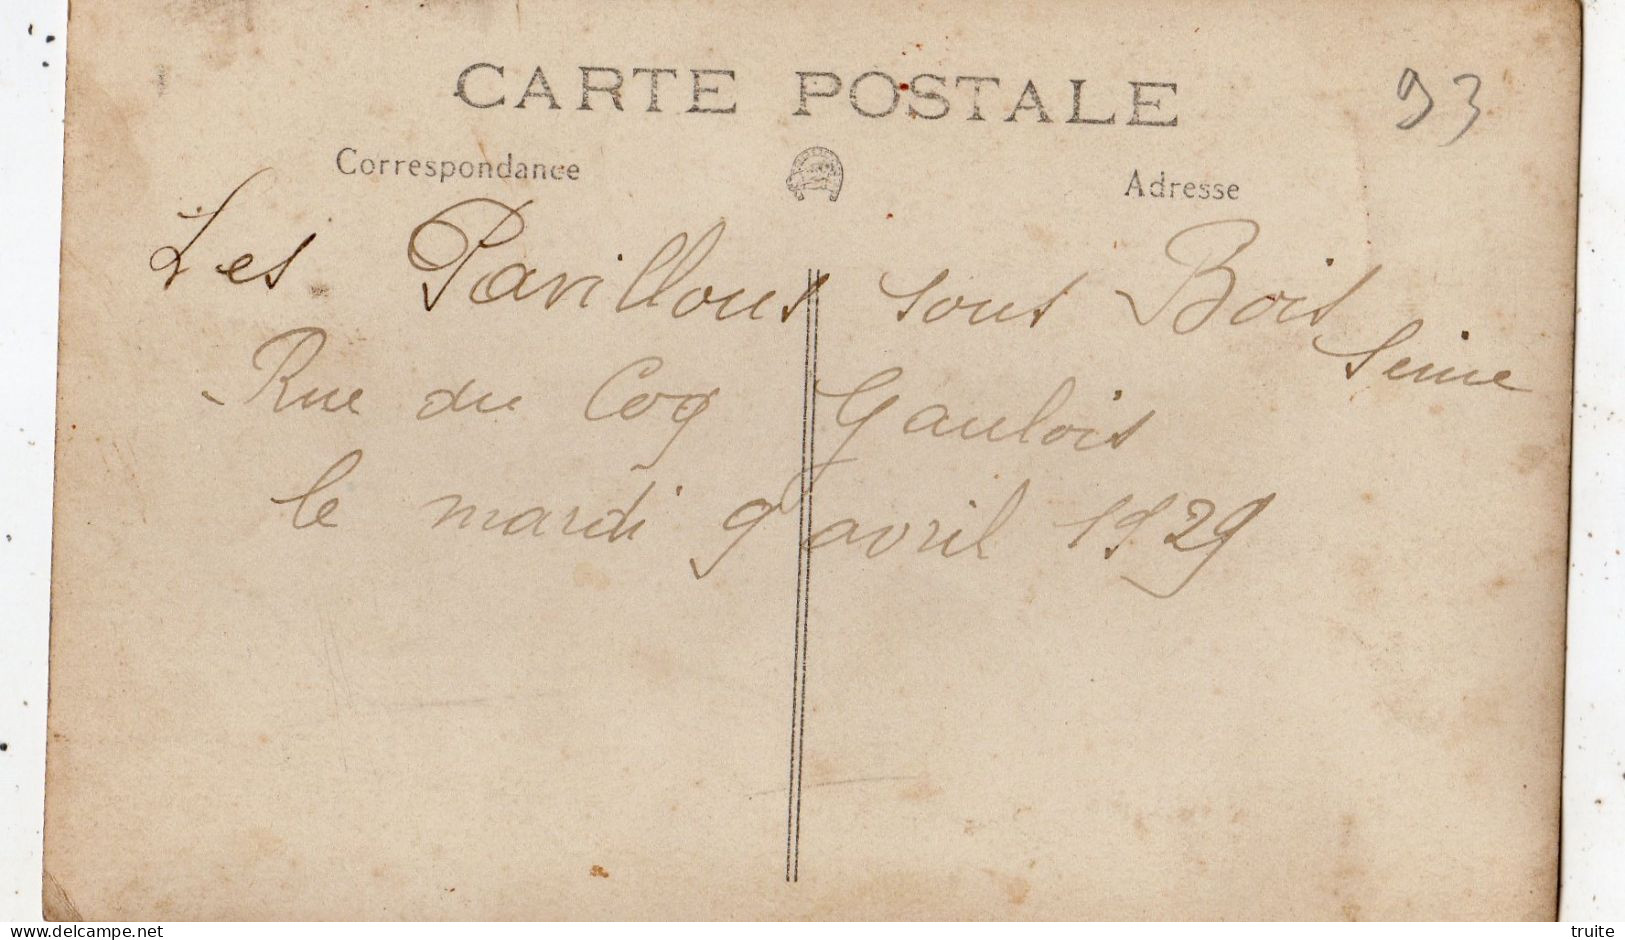 CARTE POSTALE
93
Correspondance
Adresse
Les Pavillons sous Bois
Seine
Rue du Coq Gaulois
le mardi 9 avril 1929
delcampe.net
truite